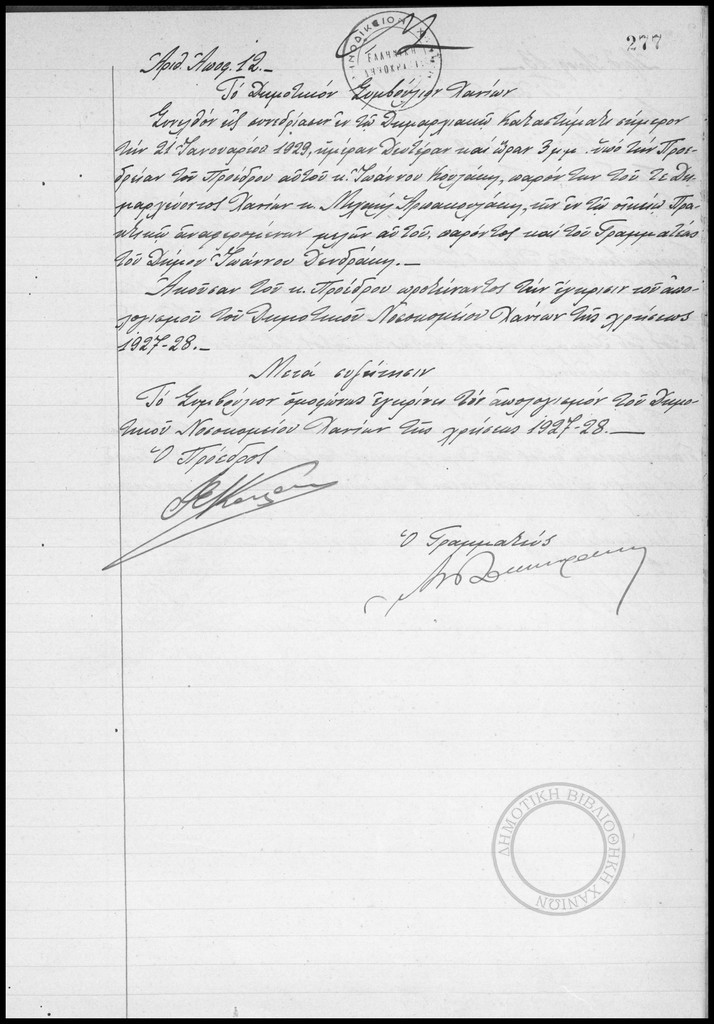 277
ΕΛΛΗΝΙΚΗ
Ἀριθ. Ἀποφ. 12.—
Τό Δημοτικόν Συμβούλιον Χανίων
Συνελθόν εἰς συνεδρίασιν ἐν τῷ Δημαρχιακῷ Καταστήματι σήμερον
τήν 21 Ἰανουαρίου 1929, ἡμέραν Δευτέραν καί ὥραν 3 μ.μ. ὑπό τήν Προε-
δρείαν τοῦ Προέδρου αὐτοῦ κ. Ἰωάννου Κουζάκη, παρόντων τοῦ τε Δη-
μαρχεύοντος Χανίων κ. τῶν ἐν τῷ οἰκείῳ Πρα-
κτικῷ ἀναφερομένων μελῶν αὐτοῦ, παρόντος καί τοῦ Γραμματέως
τοῦ Δήμου Ἰωάννου Δενδράκη.—
Ἀκοῦσαν τοῦ κ. Προέδρου προτείναντος τήν ἔγκρισιν τοῦ ἀπο-
λογισμοῦ τοῦ Δημοτικοῦ Νοσοκομείου Χανίων τῆς χρήσεως
1927-28.—
Μετά συζήτησιν
Τό Συμβούλιον ὁμοφώνως ἐγκρίνει τόν ἀπολογισμόν τοῦ Δημο-
τικοῦ Νοσοκομείου Χανίων τῆς χρήσεως 1927-28.—
Ὁ Πρόεδρος
Ὁ Γραμματεύς
ΔΗΜΟΤΙΚΗ ΒΙΒΛΙΟΘΗΚΗ ΧΑΝΙΩΝ